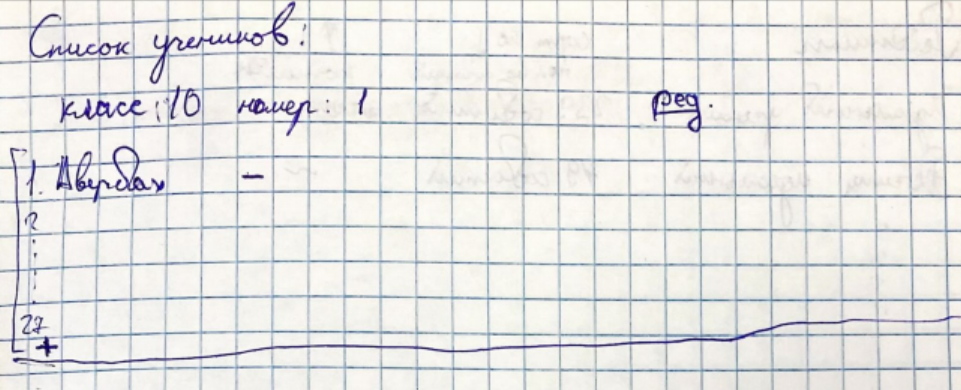 Список учеников:
класс: 10 номер: 1 ред.
1. Авербах –
2
27
+